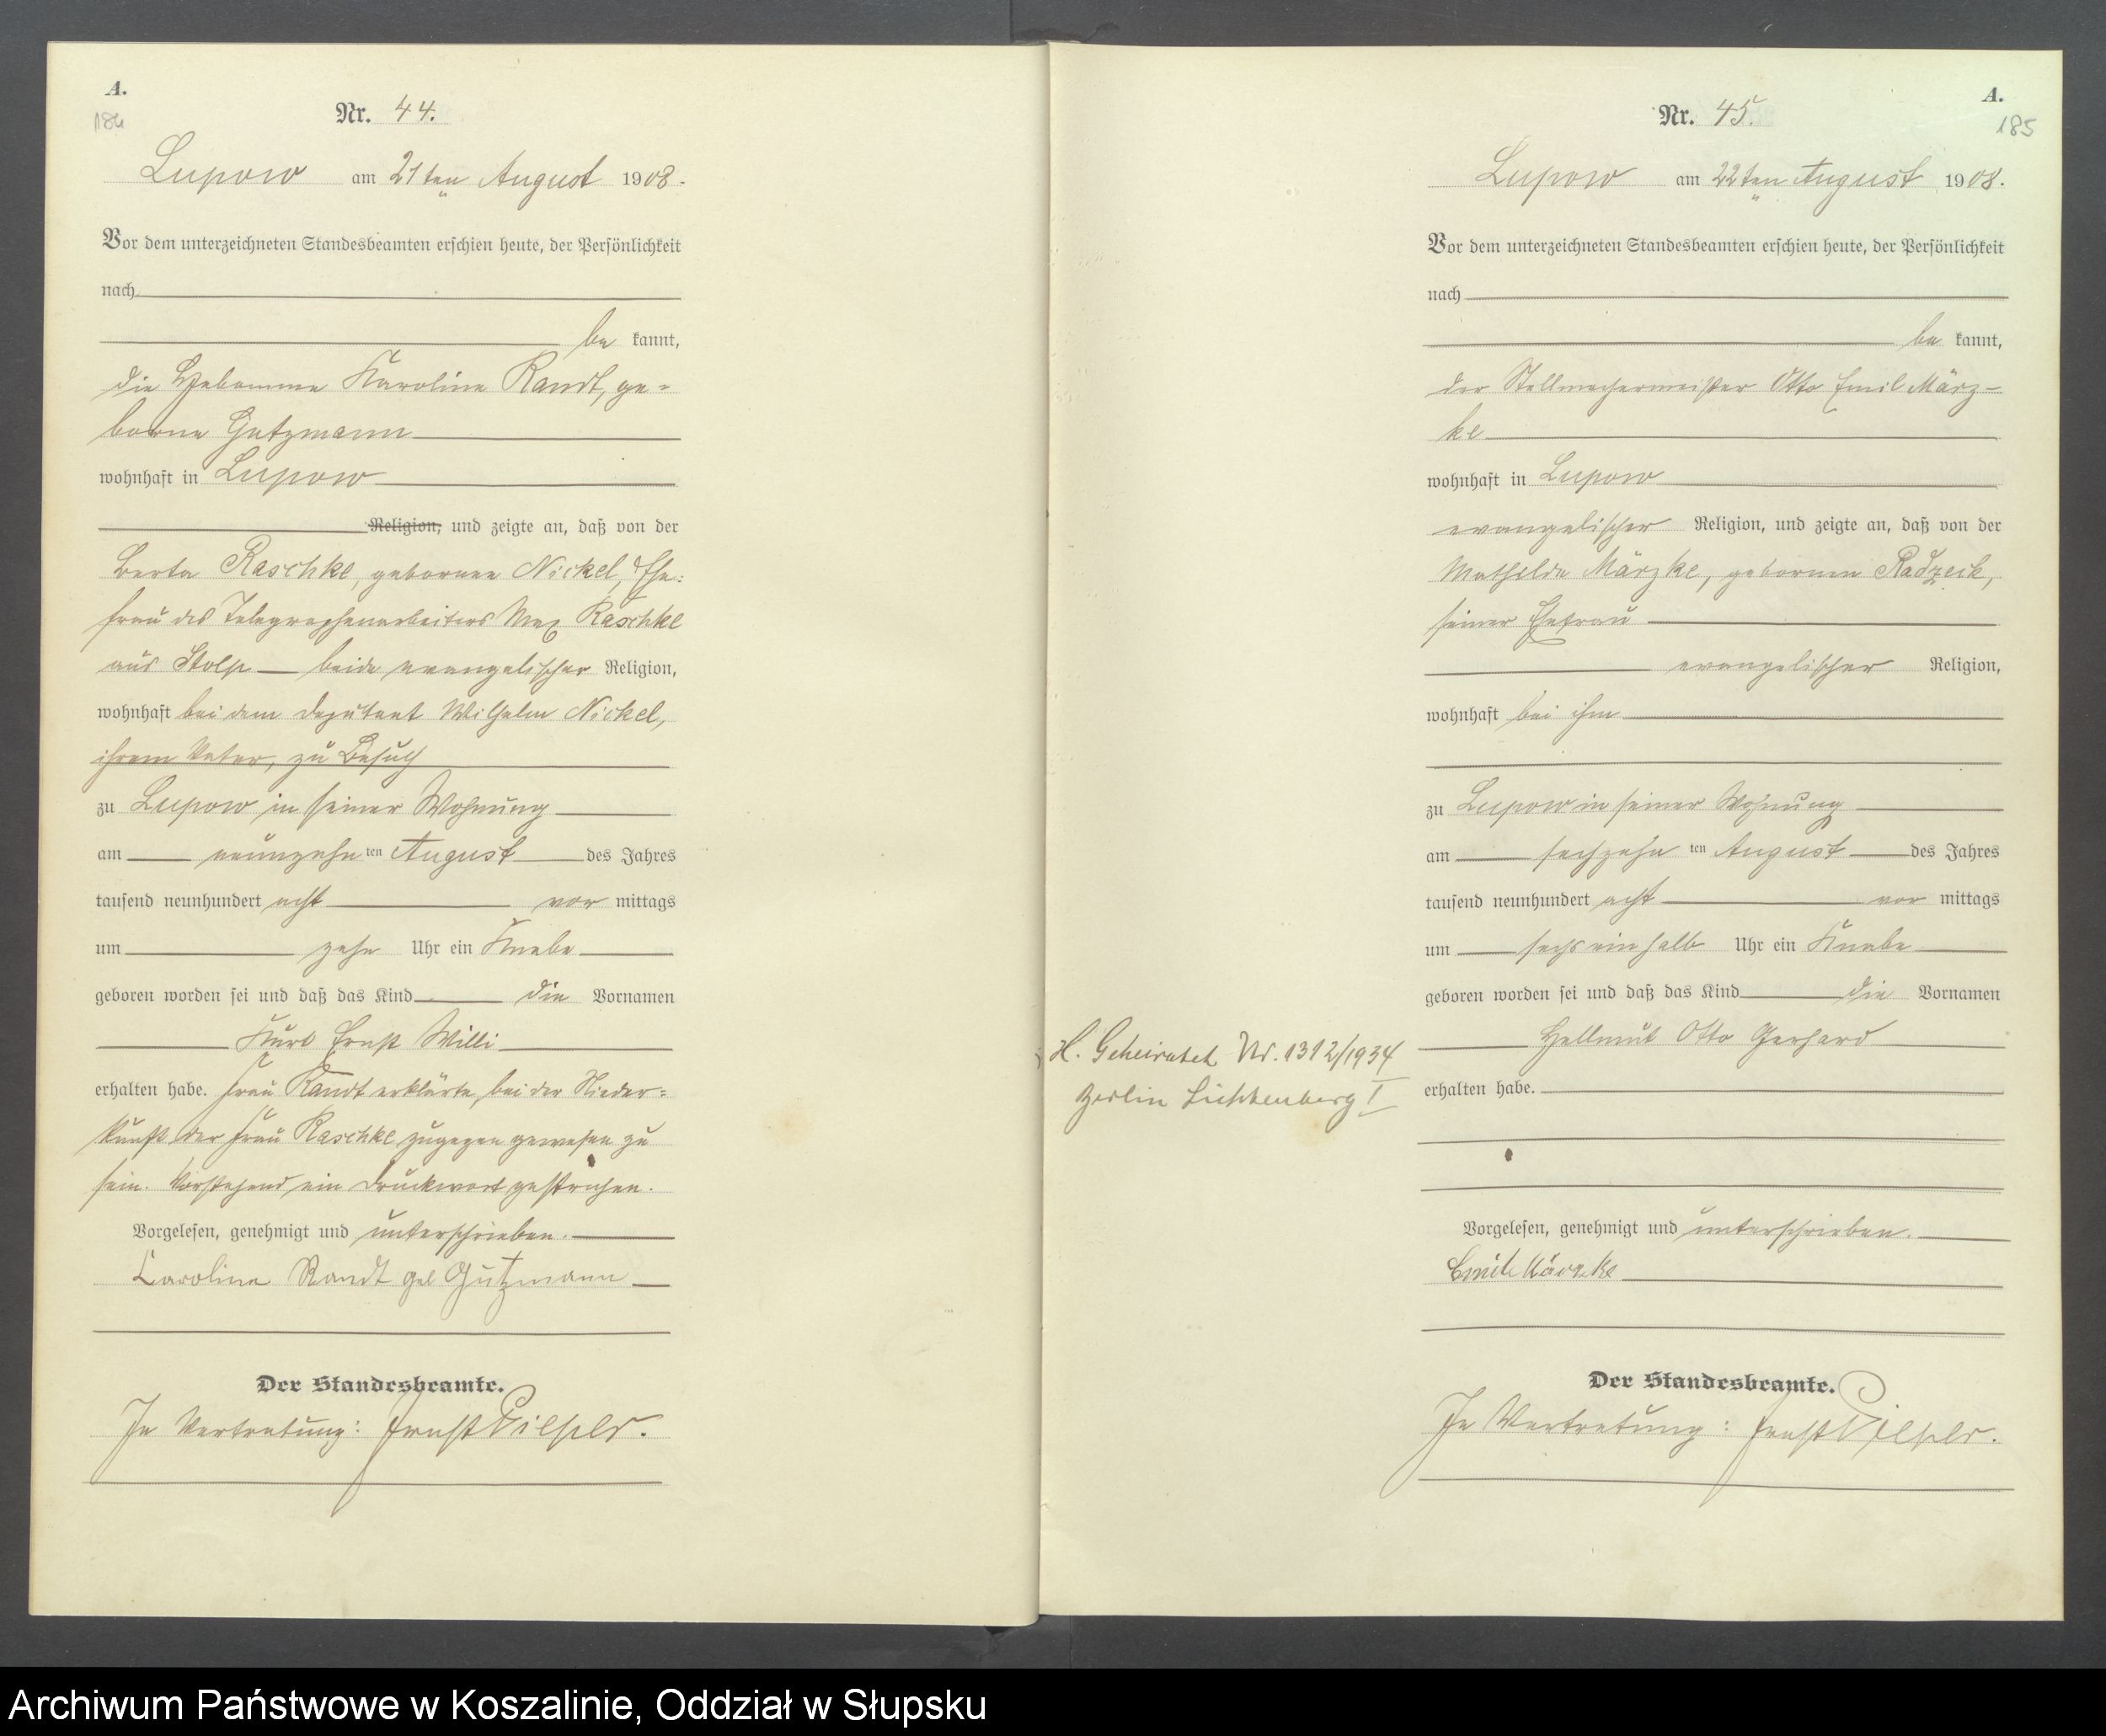 A.
184
Nr. 44.
Lupow am 21ten August 1908.
Vor dem unterzeichneten Standesbeamten erschien heute, der Persönlichkeit
nach
be kannt,
die Hebamme Karoline Randt, ge=
borne Gutzmann
wohnhaft in Lupow
Religion, und zeigte an, daß von der
Berta Raschke, geborenen Nickel, Ehe=
frau des Telegraphenarbeiters Max Raschke
aus Stolp — beide evangelischer Religion,
wohnhaft bei dem Deputant Wilhelm Nickel,
ihrem Vater, zu Besuch
zu Lupow in seiner Wohnung
am neunzehnten August des Jahres
tausend neunhundert acht vor mittags
um zehn Uhr ein Knabe
geboren worden sei und daß das Kind die Vornamen
Kurt Ernst Willi
erhalten habe. Frau Randt erklärte, bei der Nieder=
kunft der Frau Raschke zugegen gewesen zu
sein. Vorstehend ein Druckwort gestrichen.
Vorgelesen, genehmigt und unterschrieben.
Caroline Randt geb Gutzmann
Der Standesbeamte.
In Vertretung: Ernst
A.
185
Nr. 45.
Lupow am 22ten August 1908.
Vor dem unterzeichneten Standesbeamten erschien heute, der Persönlichkeit
nach
be kannt,
der Stellmachermeister Otto Emil März-
ke
wohnhaft in Lupow
evangelischer Religion, und zeigte an, daß von der
Mathilde Märzke, geborenen Radzeck,
seiner Ehefrau
evangelischer Religion,
wohnhaft bei ihm
zu Lupow in seiner Wohnung
am sechzehnten August des Jahres
tausend neunhundert acht vor mittags
um sechs ein halb Uhr ein Knabe
geboren worden sei und daß das Kind die Vornamen
Hellmut Otto Gerhard
erhalten habe.
H. Geheiratet Nr. 1312/1934
Berlin Lichtenberg I
Vorgelesen, genehmigt und unterschrieben.
Emil Märzke
Der Standesbeamte.
In Vertretung: Ernst
Archiwum Państwowe w Koszalinie, Oddział w Słupsku